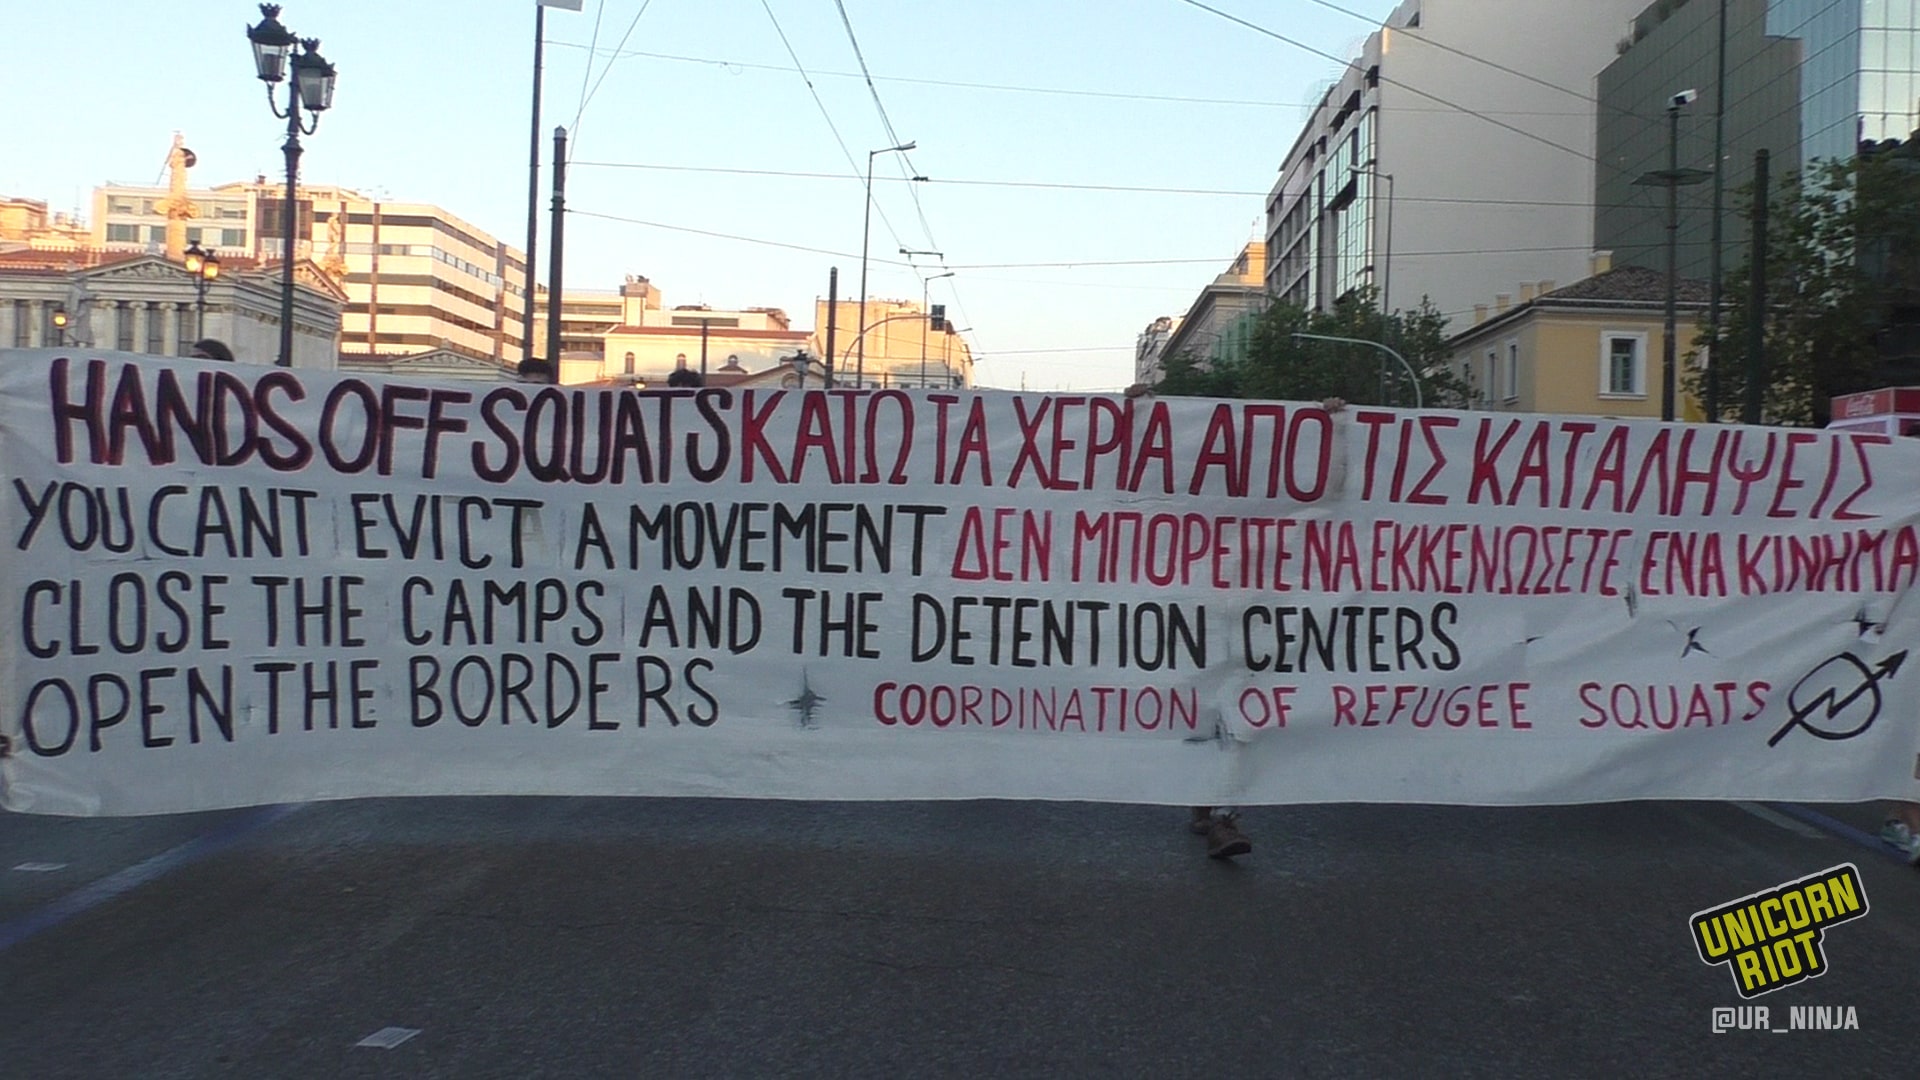 HANDS OFF SQUATS ΚΑΤΩ ΤΑ ΧΕΡΙΑ ΑΠΟ ΤΙΣ ΚΑΤΑΛΗΨΕΙΣ
YOU CANT EVICT A MOVEMENT ΔΕΝ ΜΠΟΡΕΙΤΕ ΝΑ ΕΚΚΕΝΩΣΕΤΕ ΕΝΑ ΚΙΝΗΜΑ
CLOSE THE CAMPS AND THE DETENTION CENTERS
OPEN THE BORDERS COORDINATION OF REFUGEE SQUATS
UNICORN
RIOT
@UR_NINJA